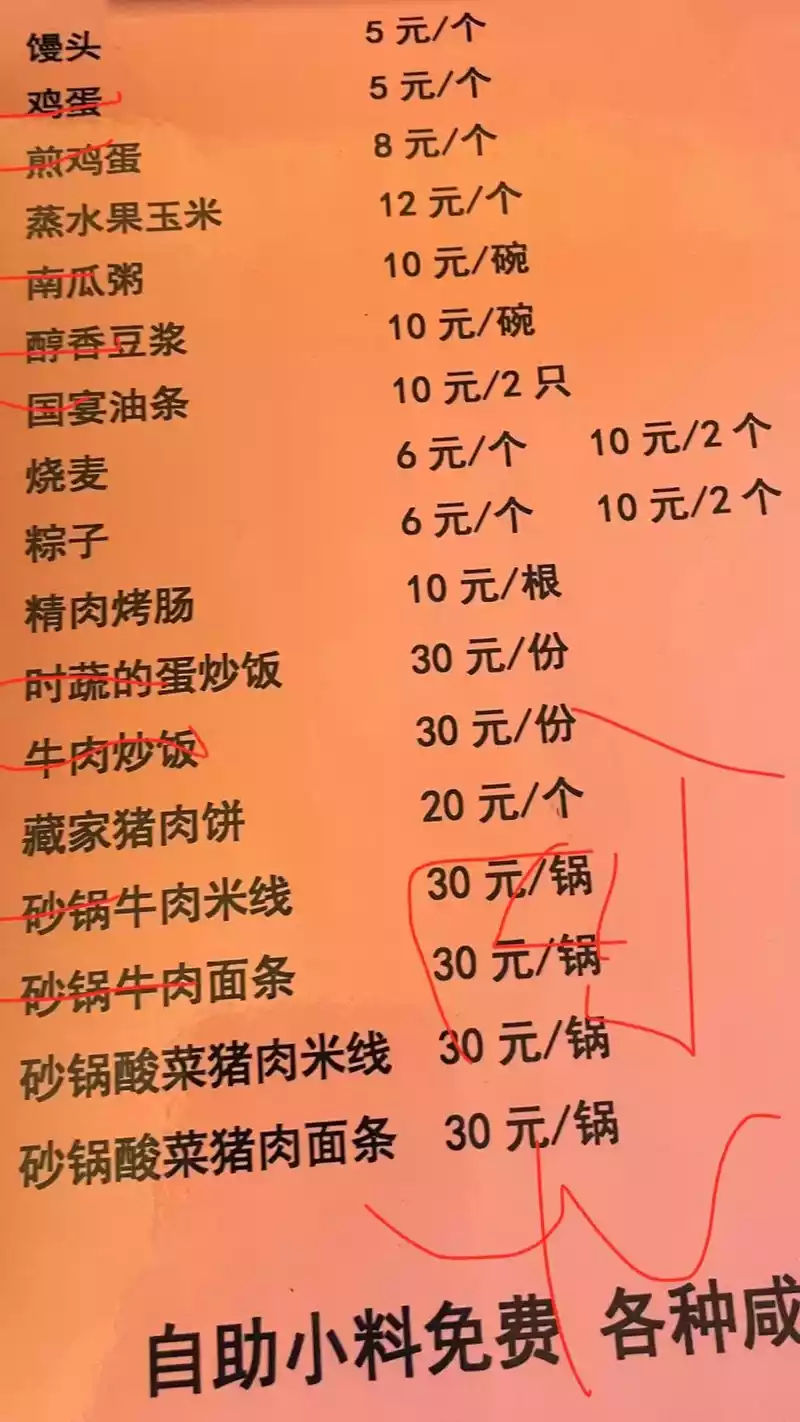 馒头 5 元/个
鸡蛋 5 元/个
煎鸡蛋 8 元/个
蒸水果玉米 12 元/个
南瓜粥 10 元/碗
醇香豆浆 10 元/碗
国宴油条 10 元/2 只
烧麦 6 元/个 10 元/2 个
粽子 6 元/个 10 元/2 个
精肉烤肠 10 元/根
时蔬的蛋炒饭 30 元/份
牛肉炒饭 30 元/份
藏家猪肉饼 20 元/个
砂锅牛肉米线 30 元/锅
砂锅牛肉面条 30 元/锅
砂锅酸菜猪肉米线 30 元/锅
砂锅酸菜猪肉面条 30 元/锅
自助小料免费 各种咸